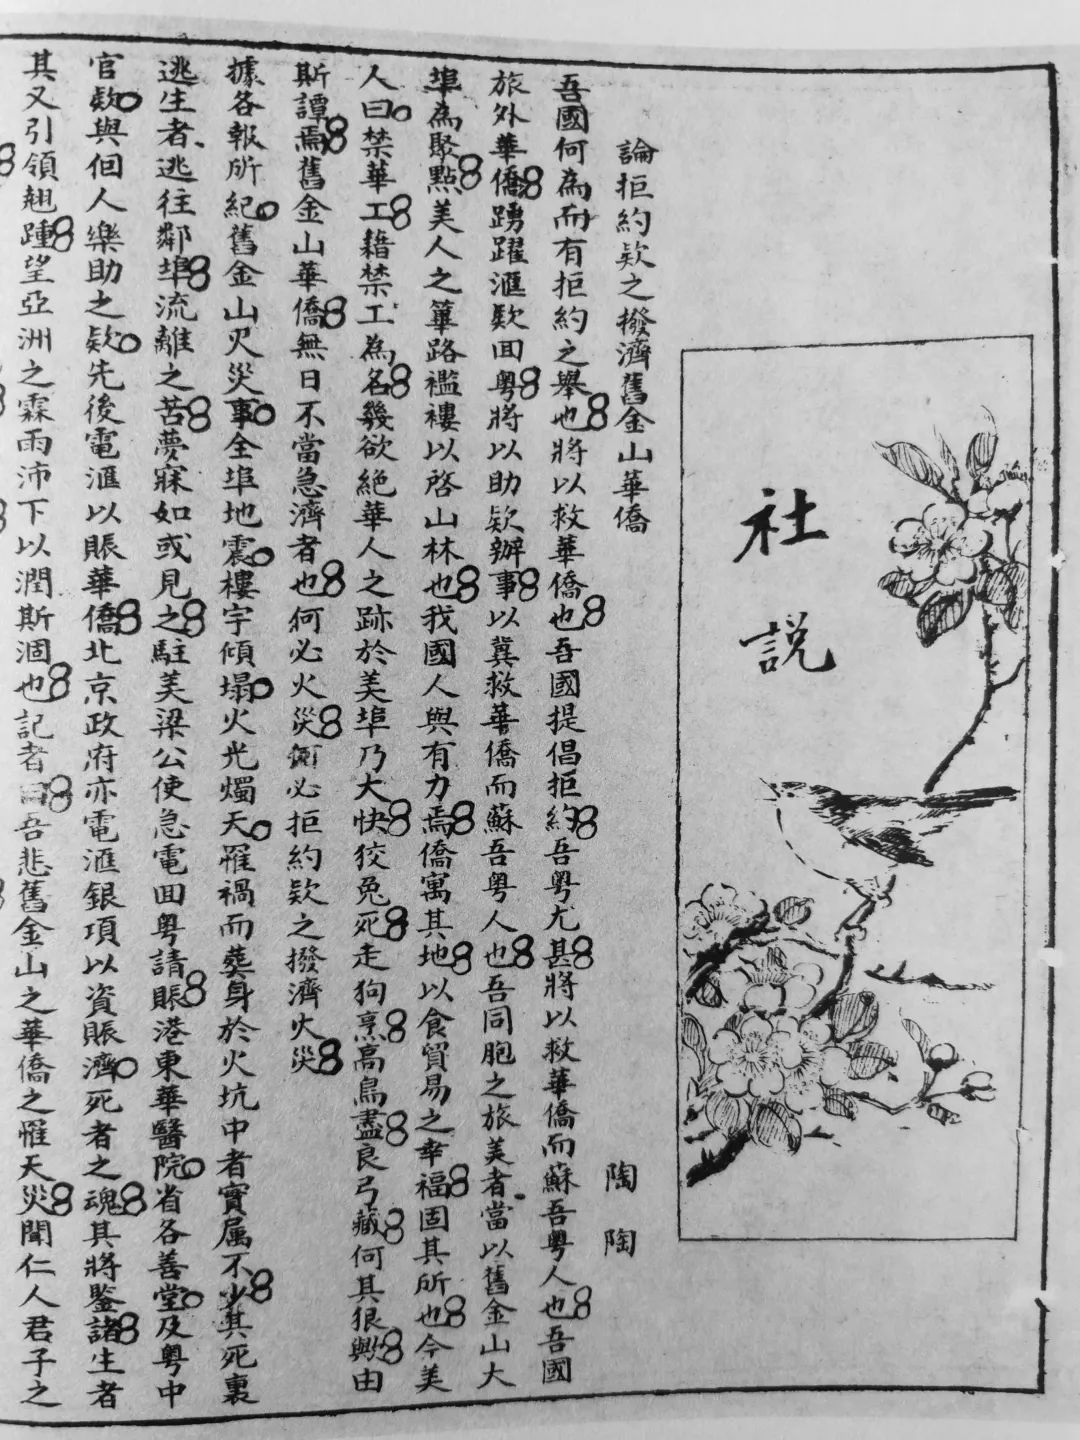 社說
論拒約欵之撥濟舊金山華僑
陶陶
吾國何為而有拒約之舉也將以救華僑也吾國提倡拒約吾粵尤甚將以救華僑而蘇吾粵人也吾國
旅外華僑踴躍滙欵囬粵將以助欵辦事以冀救華僑而蘇吾粵人也吾同胞之旅美者當以舊金山大
埠為聚點美人之蓽路襤褸以啓山林也我國人與有力焉僑寓其地以食貿易之幸福固其所也今美
人曰禁華工藉禁工為名幾欲絕華人之跡於美埠乃大快狡兔死走狗烹高鳥盡良弓藏何其狠歟由
斯譚焉舊金山華僑無日不當急濟者也何必火災何必拒約欵之撥濟火災
據各報所紀舊金山火災事全埠地震樓宇傾塌火光燭天罹禍而葬身於火坑中者實属不少其死裏
逃生者逃往鄰埠流離之苦夢寐如或見之駐美梁公使急電囬粵請賑港東華醫院省各善堂及粵中
官欵與個人樂助之欵先後電滙以賬華僑北京政府亦電滙銀項以資賑濟死者之魂其將鑒諸生者
其又引領翹踵望亞洲之霖雨沛下以潤斯涸也記者曰吾悲舊金山之華僑之罹天災聞仁人君子之